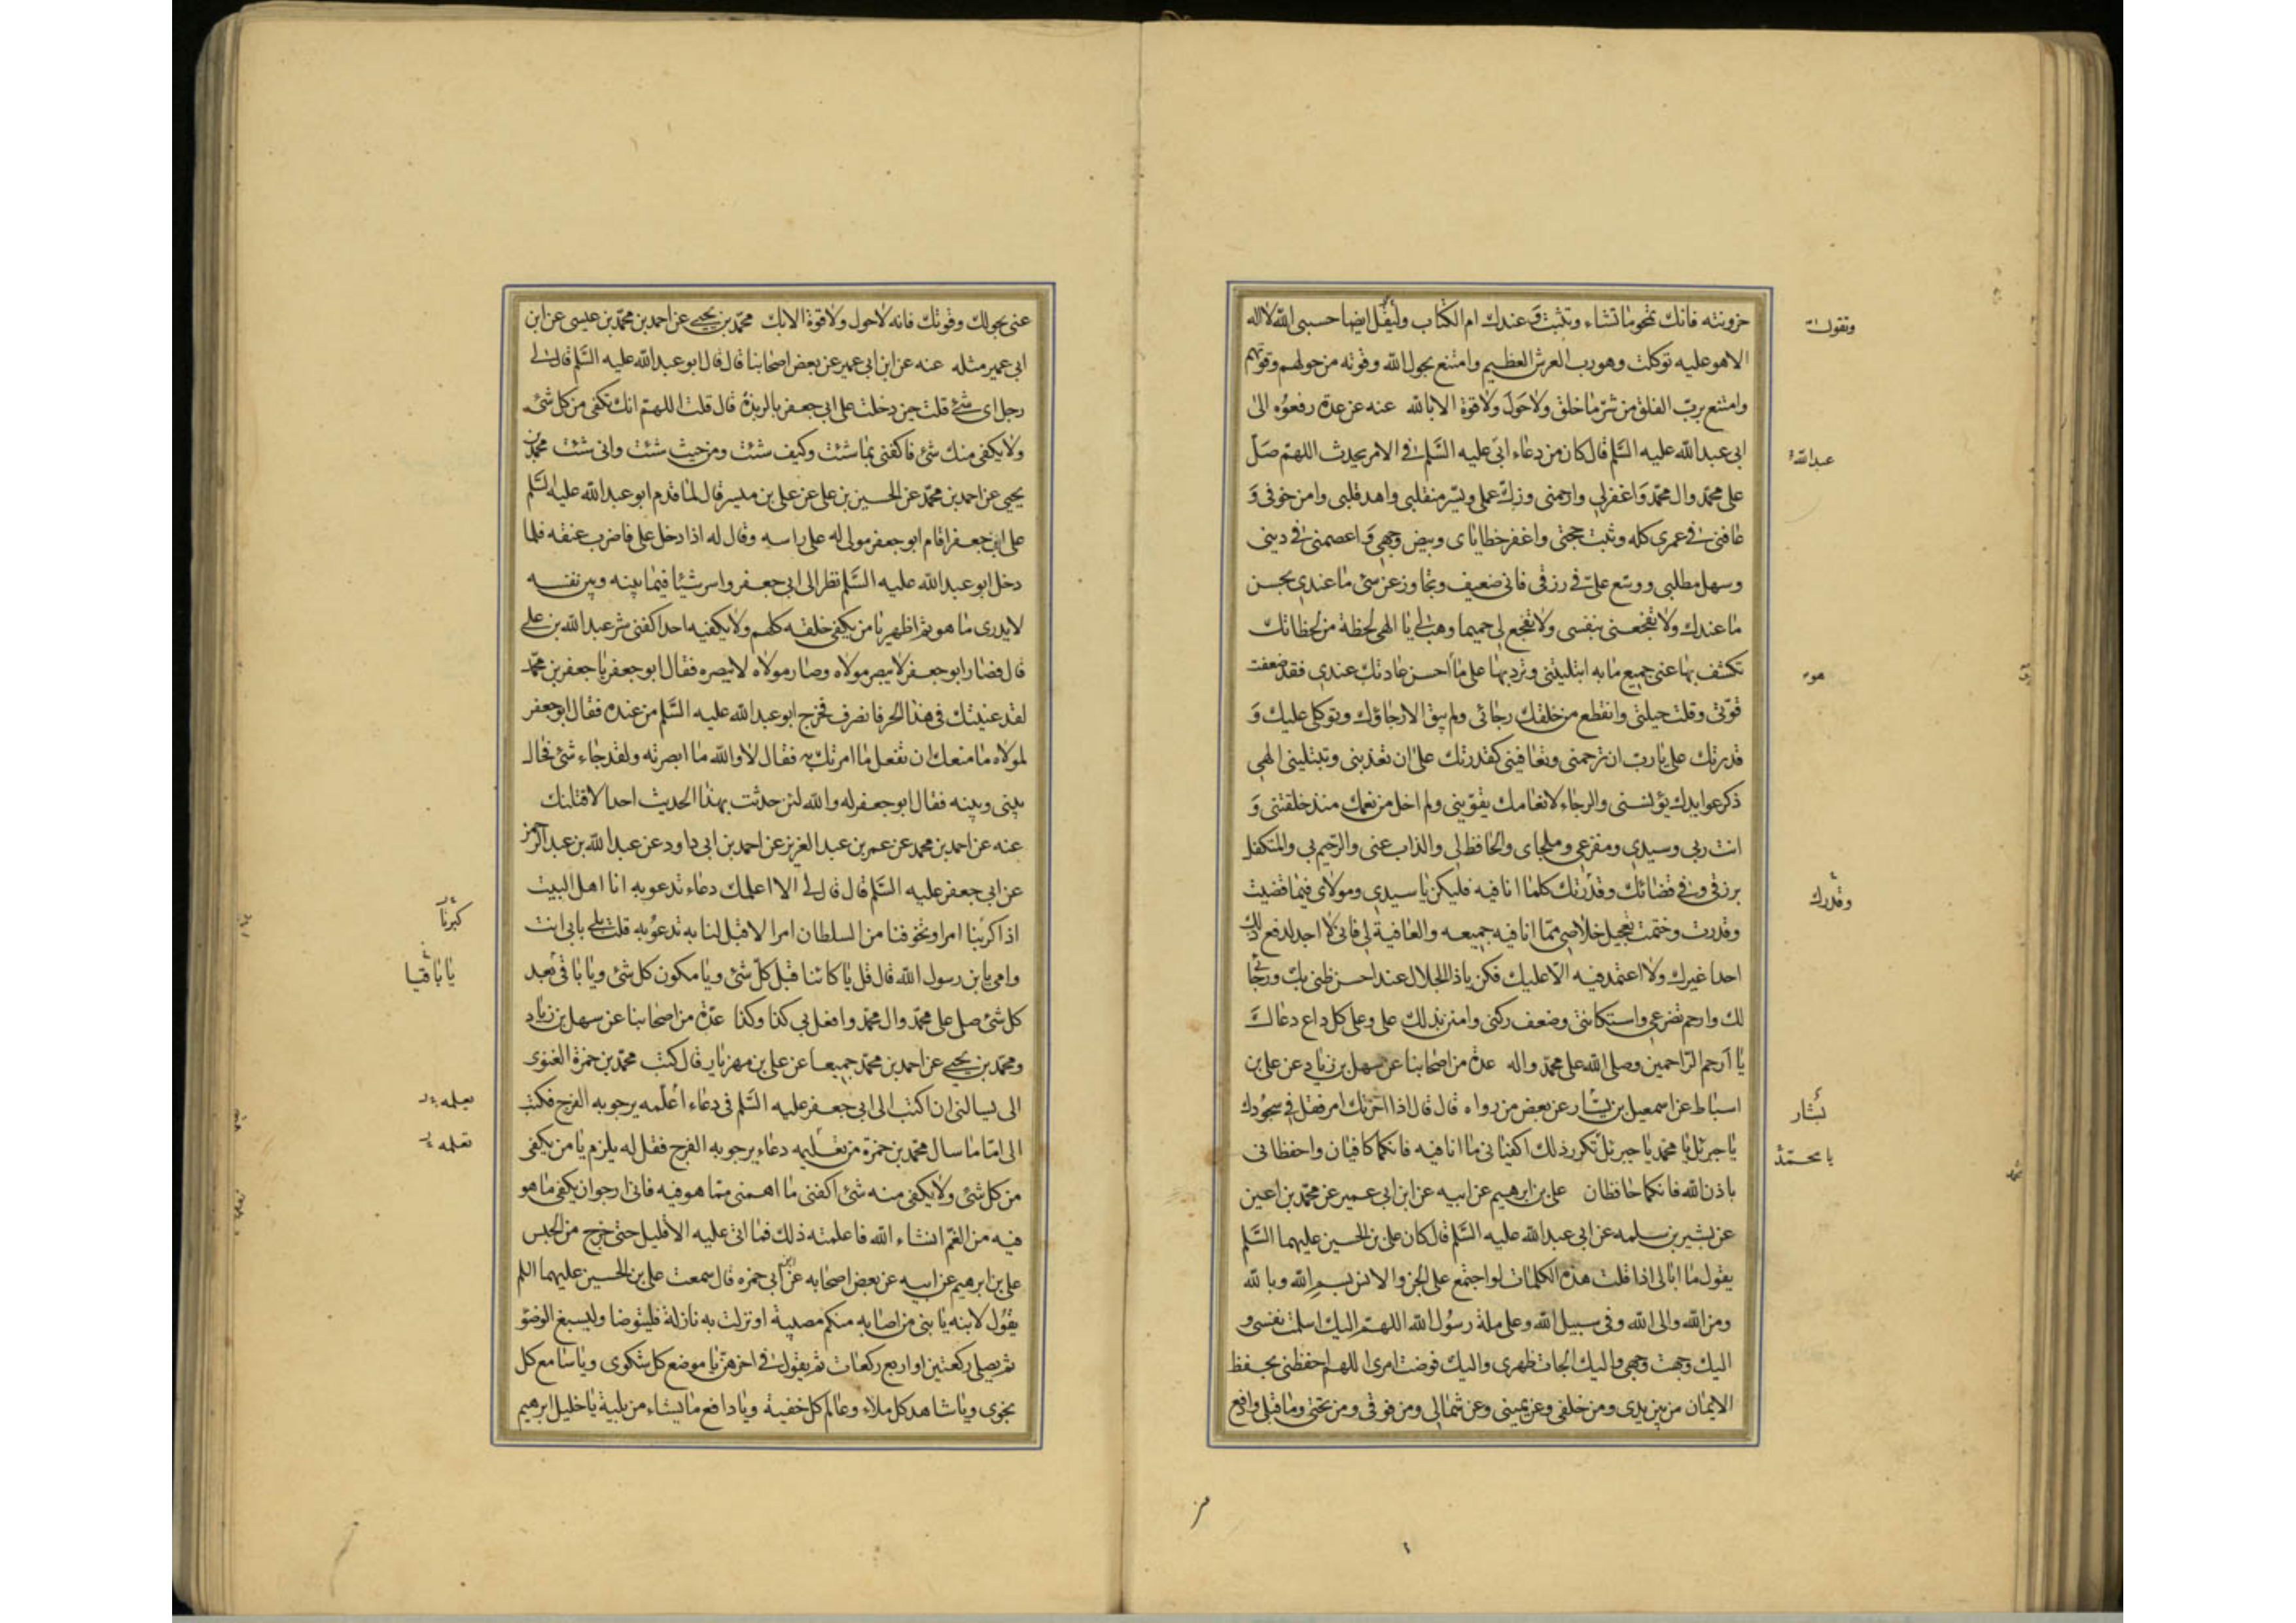 حزونته فانك تمحو ما تشاء وتثبت وَ عندك ام الكتاب وليقل ايضا حسبى الله لا اله
وتقول
الا هو عليه توكلت وهو رب العرش العظيم وامتنع بحول الله وقوته من حولهم وقوتهم
وامتنع بربّ الفلق من شرّ ما خلق ولا حَولَ ولا قوة الا بالله عنه عن عدة رفعوُه الى
ابى عبد الله عليه السَّلم قال كان من دعاء ابى عليه السَّلم فى الامر يحدث اللهمّ صَلّ
عبد الله
على محمّد وال محمّد وَاغفر لى وارحمنى وزكّ عملى ويسّر منقلبى واهد قلبى وامن خوفى وَ
عافنى فى عمرى كله وثبت حجتى واغفر خطاياى وبيض وجهى وَاعصمنى فى دينى
وسهل مطلبى ووسّع علىّ فى رزقى فانى ضعيف وتجاوز عن سئ ما عندى بحسن
ما عندك ولا تفجعنى بنفسى ولا تفجع لى حميما وهب لى يا الهى لحظة من لحظاتك
تكشف بها عنى جميع ما به ابتليتنى وترد بها على ما احسن عادتك عندى فقد ضعفت
هو
قوّتى وقلت حيلتى وانقطع من خلقك رجائى ولم يبق الا رجاؤك وتوكلى عليك وَ
قدرتك على يا ربّ ان ترحمنى وتعافينى كقدرتك على ان تعذبنى وتبتلينى الهى
ذكر عوايدك يؤنسنى والرجاء لانعامك يقوّينى ولم اخل من نعمك منذ خلقتنى وَ
انت ربى وسيدى ومفزعى وملجاى والحافظ لى والذاب عنى والرّحيم بى والمتكفل
برزقى وفى قضائك وقدّرتك كلما انا فيه فليكن يا سيدى ومولاى فيما قضيت
وقدرك
وقدرت وختمت تعجيل خلاصى ممّا انا فيه جميعه والعافية لى فانى لا اجد لدفع ذلك
احدا غيرك ولا اعتمد فيه الّا عليك فكن يا ذا الجلال عند احسن ظنى بك ورجائى
لك وارحم تضرعى واستكانتى وضعف ركنى وامنن بذلك على وعلى كل داع دعاك
يا اَرحم الرّاحمين وصلى الله على محمّد واله عدة من اصحابنا عن سهل بن زياد عن على بن
اسباط عن اسمعيل بن يسار عن بعض من رواه قال قال اذا احزنك امر فقل فى سجُودك
بشار
يا جبرئل يا محمّد يا جبرئل تكرر ذلك اكفيانى ما انا فيه فانكما كافيان واحفظانى
يا محمّد
باذن الله فانكما حافظان على بن ابرهيم عن ابيه عن ابن ابى عمير عن محمّد بن اعين
عن بشير بن سلمه عن ابى عبد الله عليه السَّلم قال كان على بن الحسين عليهما السَّلم
يقول ما ابالى اذا قلت هذه الكلمات لو اجتمع على الجن والانس بسم الله وبالله
ومن الله والى الله وفى سبيل الله وعلى ملة رسُول الله اللهمّ اليك اسلمت نفسى و
اليك وجهت وجهى واليك الجات ظهرى واليك فوضت امرى اللهم احفظنى بحفظ
الايمان من بين يدى ومن خلفى وعن يمينى وعن شمالى ومن فوقى ومن تحتى وما قبلى وادفع
عنى بحولك وقوتك فانه لا حول ولا قوة الا بك محمّد بن يحيى عن احمد بن محمّد بن عيسى عن ابن
ابى عمير مثله عنه عن ابن ابى عمير عن بعض اصحابنا قال قال ابو عبد الله عليه السَّلم قال لى
رجل اى شئ قلت حين دخلت على ابى جعفر بالربذة قال قلت اللهمّ انك تكفى من كل شئ
ولا يكفى منك شئ فاكفنى بما شئت وكيف شئت ومن حيث شئت وانى شئت محمّد بن
يحيى عن احمد بن محمّد عن الحسين بن على عن على بن ميسر قال لما قدم ابو عبد الله عليه السَّلم
على ابى جعفر اقام ابو جعفر مولى له على راسه وقال له اذا دخل على فاضرب عنقه فلما
دخل ابو عبد الله عليه السَّلم نظر الى ابى جعفر واسر شيئا فيما بينه وبين نفسه
لا يدرى ما هو ثم اظهر يا من يكفى خلقه كلهم ولا يكفيه احد اكفنى شر عبد الله بن على
قال فصار ابو جعفر لا يبصر مولاه وصار مولاه لا يبصره فقال ابو جعفر يا جعفر بن محمّد
لقد عنيتك فى هذا الحر فانصرف فخرج ابو عبد الله عليه السَّلم من عنده فقال ابو جعفر
لمولاه ما منعك ان تفعل ما امرتك به فقال لا والله ما ابصرته ولقد جاء شئ فحال
بينى وبينه فقال ابو جعفر له والله لئن حدثت بهذا الحديث احدا لاقتلنك
عنه عن احمد بن محمد عن عمر بن عبد العزيز عن احمد بن ابى داود عن عبد الله بن عبد الرحمن
عن ابى جعفر عليه السَّلم قال قال لى الا اعلمك دعاء تدعو به انا اهل البيت
اذا كربنا امر وتخوفنا من السلطان امرا لا قبل لنا به ندعوُ به قلت بلى بابى انت
كبرنا
وامى يا بن رسول الله قال قل يا كائنا قبل كلّ شئ ويا مكون كل شئ ويا باقى بعد
يا باقيا
كل شئ صل على محمّد وال محمّد وافعل بى كذا وكذا عدّة من اصحابنا عن سهل بن زياد
ومحمّد بن يحيى عن احمد بن محمّد جميعا عن على بن مهزيار قال كتب محمّد بن حمزة الغنوى
الى يسالنى ان اكتب الى ابى جعفر عليه السَّلم فى دعاء اُعلّمه يرجو به الفرج فكتب
يعلمه
الى امّا ما سال محمّد بن حمزة من تعليمه دعاء يرجو به الفرج فقل له يلزم يا من يكفى
تعلمه
من كل شئ ولا يكفى منه شئ اكفنى ما اهمنى ممّا هو فيه فانى ارجو ان يكفى ما هو
فيه من الغمّ انشاء الله فاعلمته ذلك فما اتى عليه الا قليل حتى خرج من الحبس
على بن ابرهيم عن ابيه عن بعض اصحابه عن ابن ابى حمزه قال سمعت على بن الحسين عليهما السلم
يقوُل لابنه يا بنى من اصابه منكم مصيبة او نزلت به نازلة فليتوضا وليسبغ الوضؤ
ثم يصلى ركعتين او اربع ركعات ثم يقول فى اخرهنّ يا موضع كل شكوى ويا سامع كل
نجوى ويا شاهد كل ملاء وعالم كل خفية ويا دافع ما يشاء من بلية يا خليل ابرهيم